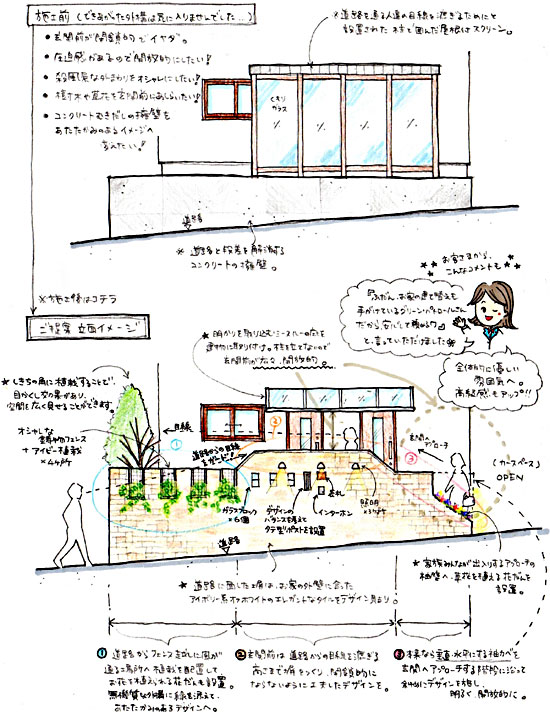 施工前 (できあがった外構は気に入りませんでした…)
• 玄関前が閉鎖的でイヤダ。
• 圧迫感があるので開放的にしたい!
• 殺風景な外まわりをオシャレにしたい!
• 植木や草花を玄関前にあしらいたい!
• コンクリートむきだしの擁壁を
あたたかみのあるイメージへ
変えたい!
※道路を通る人達の目線を遮ぎるためにと
設置された柱で囲んだ屋根はスクリーン。
くもり
ガラス
道路
※ 道路と段差を解消する
コンクリートの擁壁。
※施工後はコチラ
ご提案 立面イメージ
お客さまから、
こんなコメントも
『ふだん、お家の建て替えも
手がけているグリーンパトロールさん
だから安心して頼める』
と言っていただけました
全体的に優しい
雰囲気へ。
高級感もアップ!!
★明かりを取り込むスペースの屋根を
建物に取り付け。柱を立てないので
玄関前が広々、開放的。
★しきちの角に植栽することで
目かくし効果があり、
空間も広く見せることができます。
オシャレな
鋳物フェンス
+アイビー植栽
×4ヶ所
目線
①
②
③
道路からの目線
をガード!
玄関への
アプローチ
(カースペース)
OPEN
ガラスブロック
×6個
デザインの
バランスを考えて
タテ型ポストを設置
インターホン
表札
照明
×3ヶ所
道路
★ 道路に面した塀は、お家の外壁に合った
アイボリー系オフホワイトのエレガントなタイルをデザイン貼り。
★ 家族みんなが出入りするアプローチの
袖壁へ、草花を植える花だんを
設置。
① 道路からフェンス越しに風が
通る場所へ植栽を配置して
お花も植えられる花だんも設置。
無機質な外構に緑を添えて、
あたたかみのあるデザインへ。
②玄関前は道路からの目線を遮ぎる
高さまで塀をつくり、閉鎖的に
ならないように工夫したデザインを。
③本来なら垂直・水平にする袖カベを
玄関へアプローチする階段に沿って
斜めにデザインを施し、
明るく開放的に。